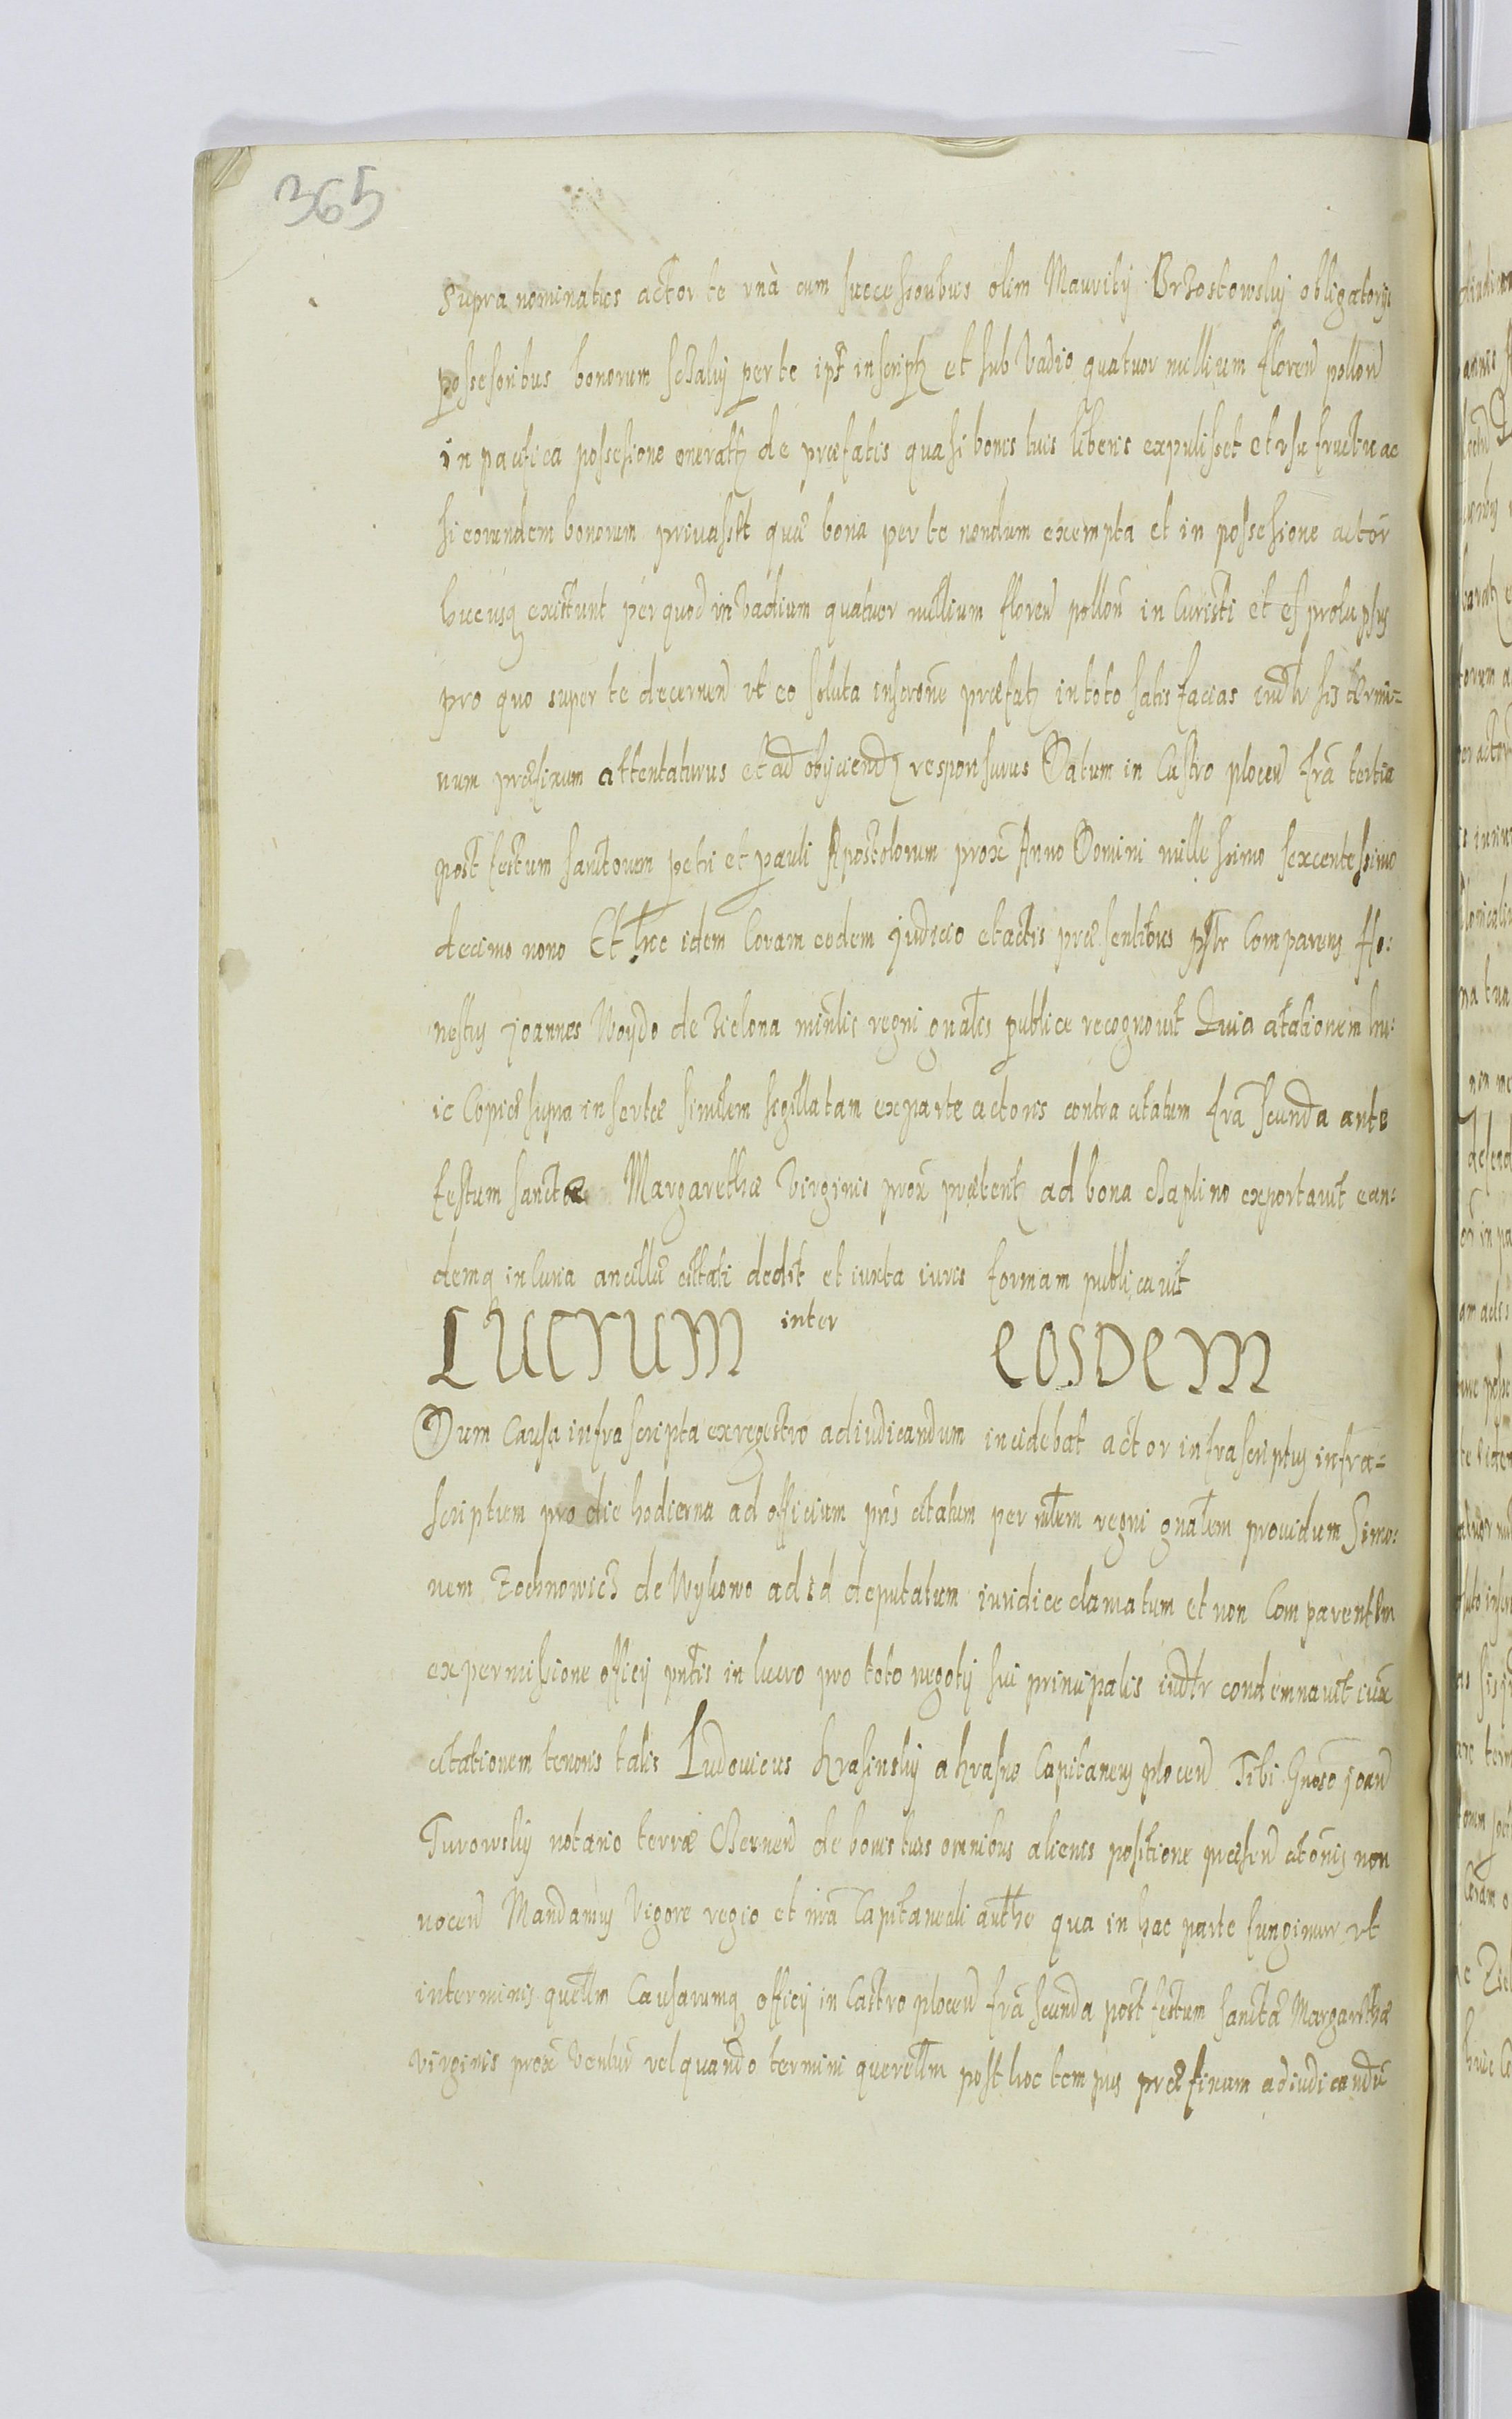 365
supra nominatus actor te unà cum successoribus olim Maurity Brzostowsky obligatorys
possesoribus bonorum per te ips inscriptz et sub Vadio quatuor millium floren pollon
in pacifica possesione oneratz de præfatis quasi bonis tuis liberis expulisset et usu fructu ac
si eorundem bonorum privasset quæ bona per te nondum exempta et in possesione actor
hucusq existunt per quod in Vadium quatuor millium floren pollon in Curisti et es prolapsus
pro quo super te decernen ut eo soluto præfatz in toto satis facias sis termi=
num præfixum attentaturus et ad obijciendz responsurus Datum in Castro plocen fra tertia
post festum sanctorum petri et pauli Apostolorum prox Anno Domini millessimo sexcentessimo
decimo nono Et hic idem Coram eodem judicio et actis præsentibus Comparens Ho:
nestus joannes Woydo de Zielona minlis regni gnalis publice recognovit Quia citationem hu:
ic Copiæ supra insertæ similem sigillatam ex parte actoris contra citatum fra secunda ante
festum sanctæ Margarethæ Virginis prox præterit ad bona Czaplino exportavit ean:
demq in Curia ancillæ citati dedit et iuxta iuris formam publicavit
Lucrum inter eosdem
Dum Causa infra scripta ex regestro adiudicandum incidebat actor infrascriptus infra=
scriptum pro die hodierna ad officium pns citatum per mlem regni gnalem providum Simo:
nem Zochnowicz de Wykowo ad id deputatum iuridice clamatum et non Comparentem
ex permissione officij pntis in lucro pro toto negotij sui principalis condemnavit iux
citationem tenoris talis Ludovicus Krasinsky a Krasne Capitaneus plocen Tibi Gnoso joan
Turowsky notario terræ Czernen de bonis tuis omnibus alienis positione præsen non
nocen Mandamus Vigore regio et mea Capitaneali autthe qua in hac parte fungimur ut
in terminis quellm Causarumq officij in Castro plocen fra secunda post festum sanctæ Margarethæ
virginis prox Ventur vel quando termini querellm post hoc tempus præfixum adiudicandu